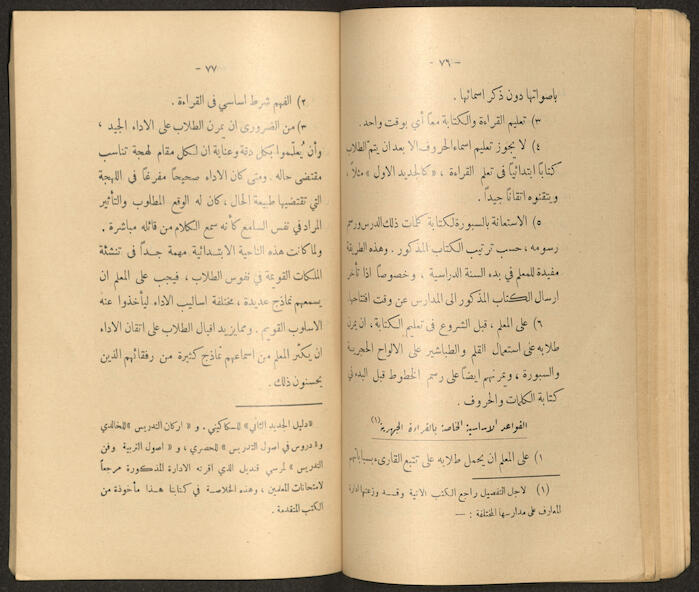 — ٧٦ —
باصواتها دون ذكر اسمائها .
٣) تعليم القراءة والكتابة معاً أي بوقت واحد .
٤) لا يجوز تعليم اسماء الحروف الا بعد ان يتم الطلاب
كتاباً ابتدائياً في تعلم القراءة ، «كالجديد الاول» مثلاً ،
ويتقنوه اتقاناً جيداً .
٥) الاستعانة بالسبورة لكتابة كلمات ذلك الدرس ورسم
رسومه ، حسب ترتيب الكتاب المذكور . وهذه الطريقة
مفيدة للمعلم في بدء السنة الدراسية ، وخصوصاً اذا تأخر
ارسال الكتاب المذكور الى المدارس عن وقت افتتاحها
٦) على المعلم ، قبل الشروع في تعليم الكتابة . ان يمرن
طلابه على استعمال القلم والطباشير على الالواح الحجرية
والسبورة ، ويمرنهم ايضاً على رسم الخطوط قبل البدء في
كتابة الكلمات والحروف .
القواعد الاساسية الخاصة بالقراءة الجهرية (١)
١) على المعلم ان يحمل طلابه على تتبع القارىء بسباباتهم
(١) لاجل التفصيل راجع الكتب الآتية وقسمه وزعتها ادارة
المعارف على مدارسها المختلفة : —
— ٧٧ —
٢) الفهم شرط اساسي في القراءة .
٣) من الضروري ان يمرن الطلاب على الاداء الجيد ،
وأن يُعلّموا بكل دقة وعناية ان لكل مقام لهجة تناسب
مقتضى حاله . ومتى كان الاداء صحيحاً مفرغاً في اللهجة
التي تقتضيها طبيعة الحال ، كان له الوقع المطلوب والتأثير
المراد في نفس السامع كأنه سمع الكلام من قائله مباشرة .
ولما كانت هذه الناحية الابتدائية مهمة جداً في تنشئة
الملكات القويمة في نفوس الطلاب ، فيجب على المعلم ان
يسمعهم نماذج عديدة ، مختلفة اساليب الاداء ليأخذوا عنه
الاسلوب القويم . ومما يزيد اقبال الطلاب على اتقان الاداء
ان يكثر المعلم من اسماعهم نماذج كثيرة من رفقائهم الذين
يحسنون ذلك .
«دليل الجديد الثاني» للسكاكيني . و « اركان التدريس » للخالدي
و« دروس في اصول التدريس » للحصري ، و « اصول التربية وفن
التدريس » لمرسي قنديل الذي اقرته الادارة المذكورة مرجعاً
لامتحانات المعلمين ، وهذه الخلاصة في كتابنا هذا مأخوذة من
الكتب المتقدمة .